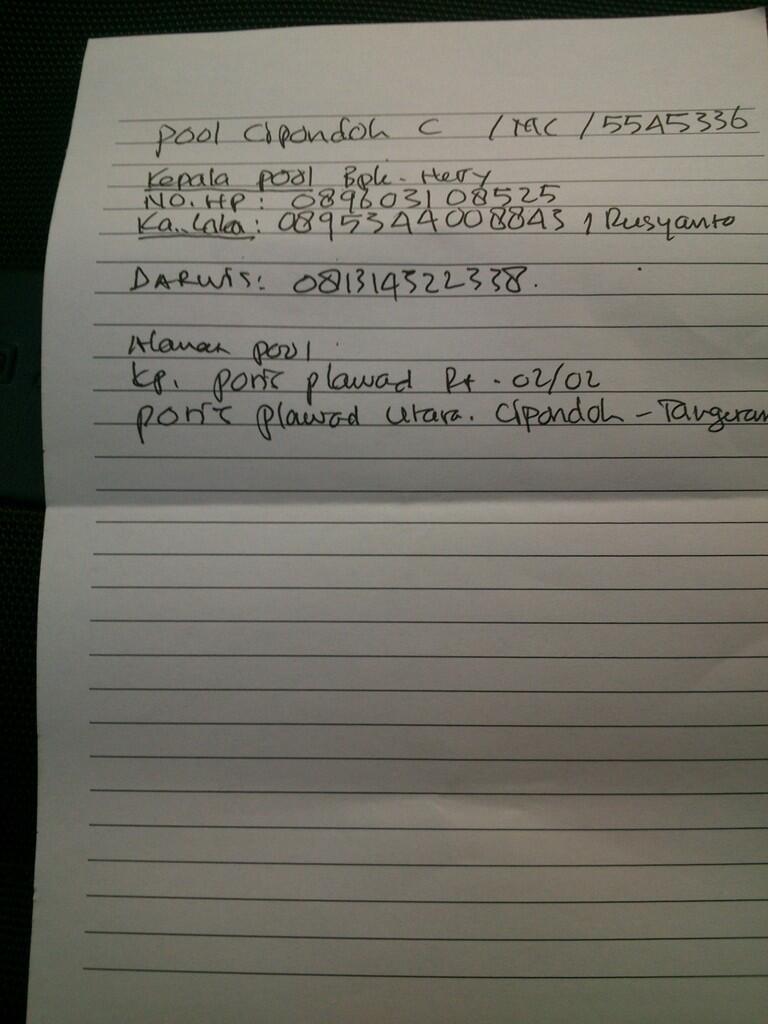 pool Cipondoh C / MC / 5545336
Kepala pool Bpk. Herry
NO. HP : 089603108525
Ka. : 0895344008843 / Rusyanto
DARWIS : 081314322338.
Alamat pool
Kp. poris plawad Rt. 02/02
poris plawad utara. Cipondoh - Tangeran